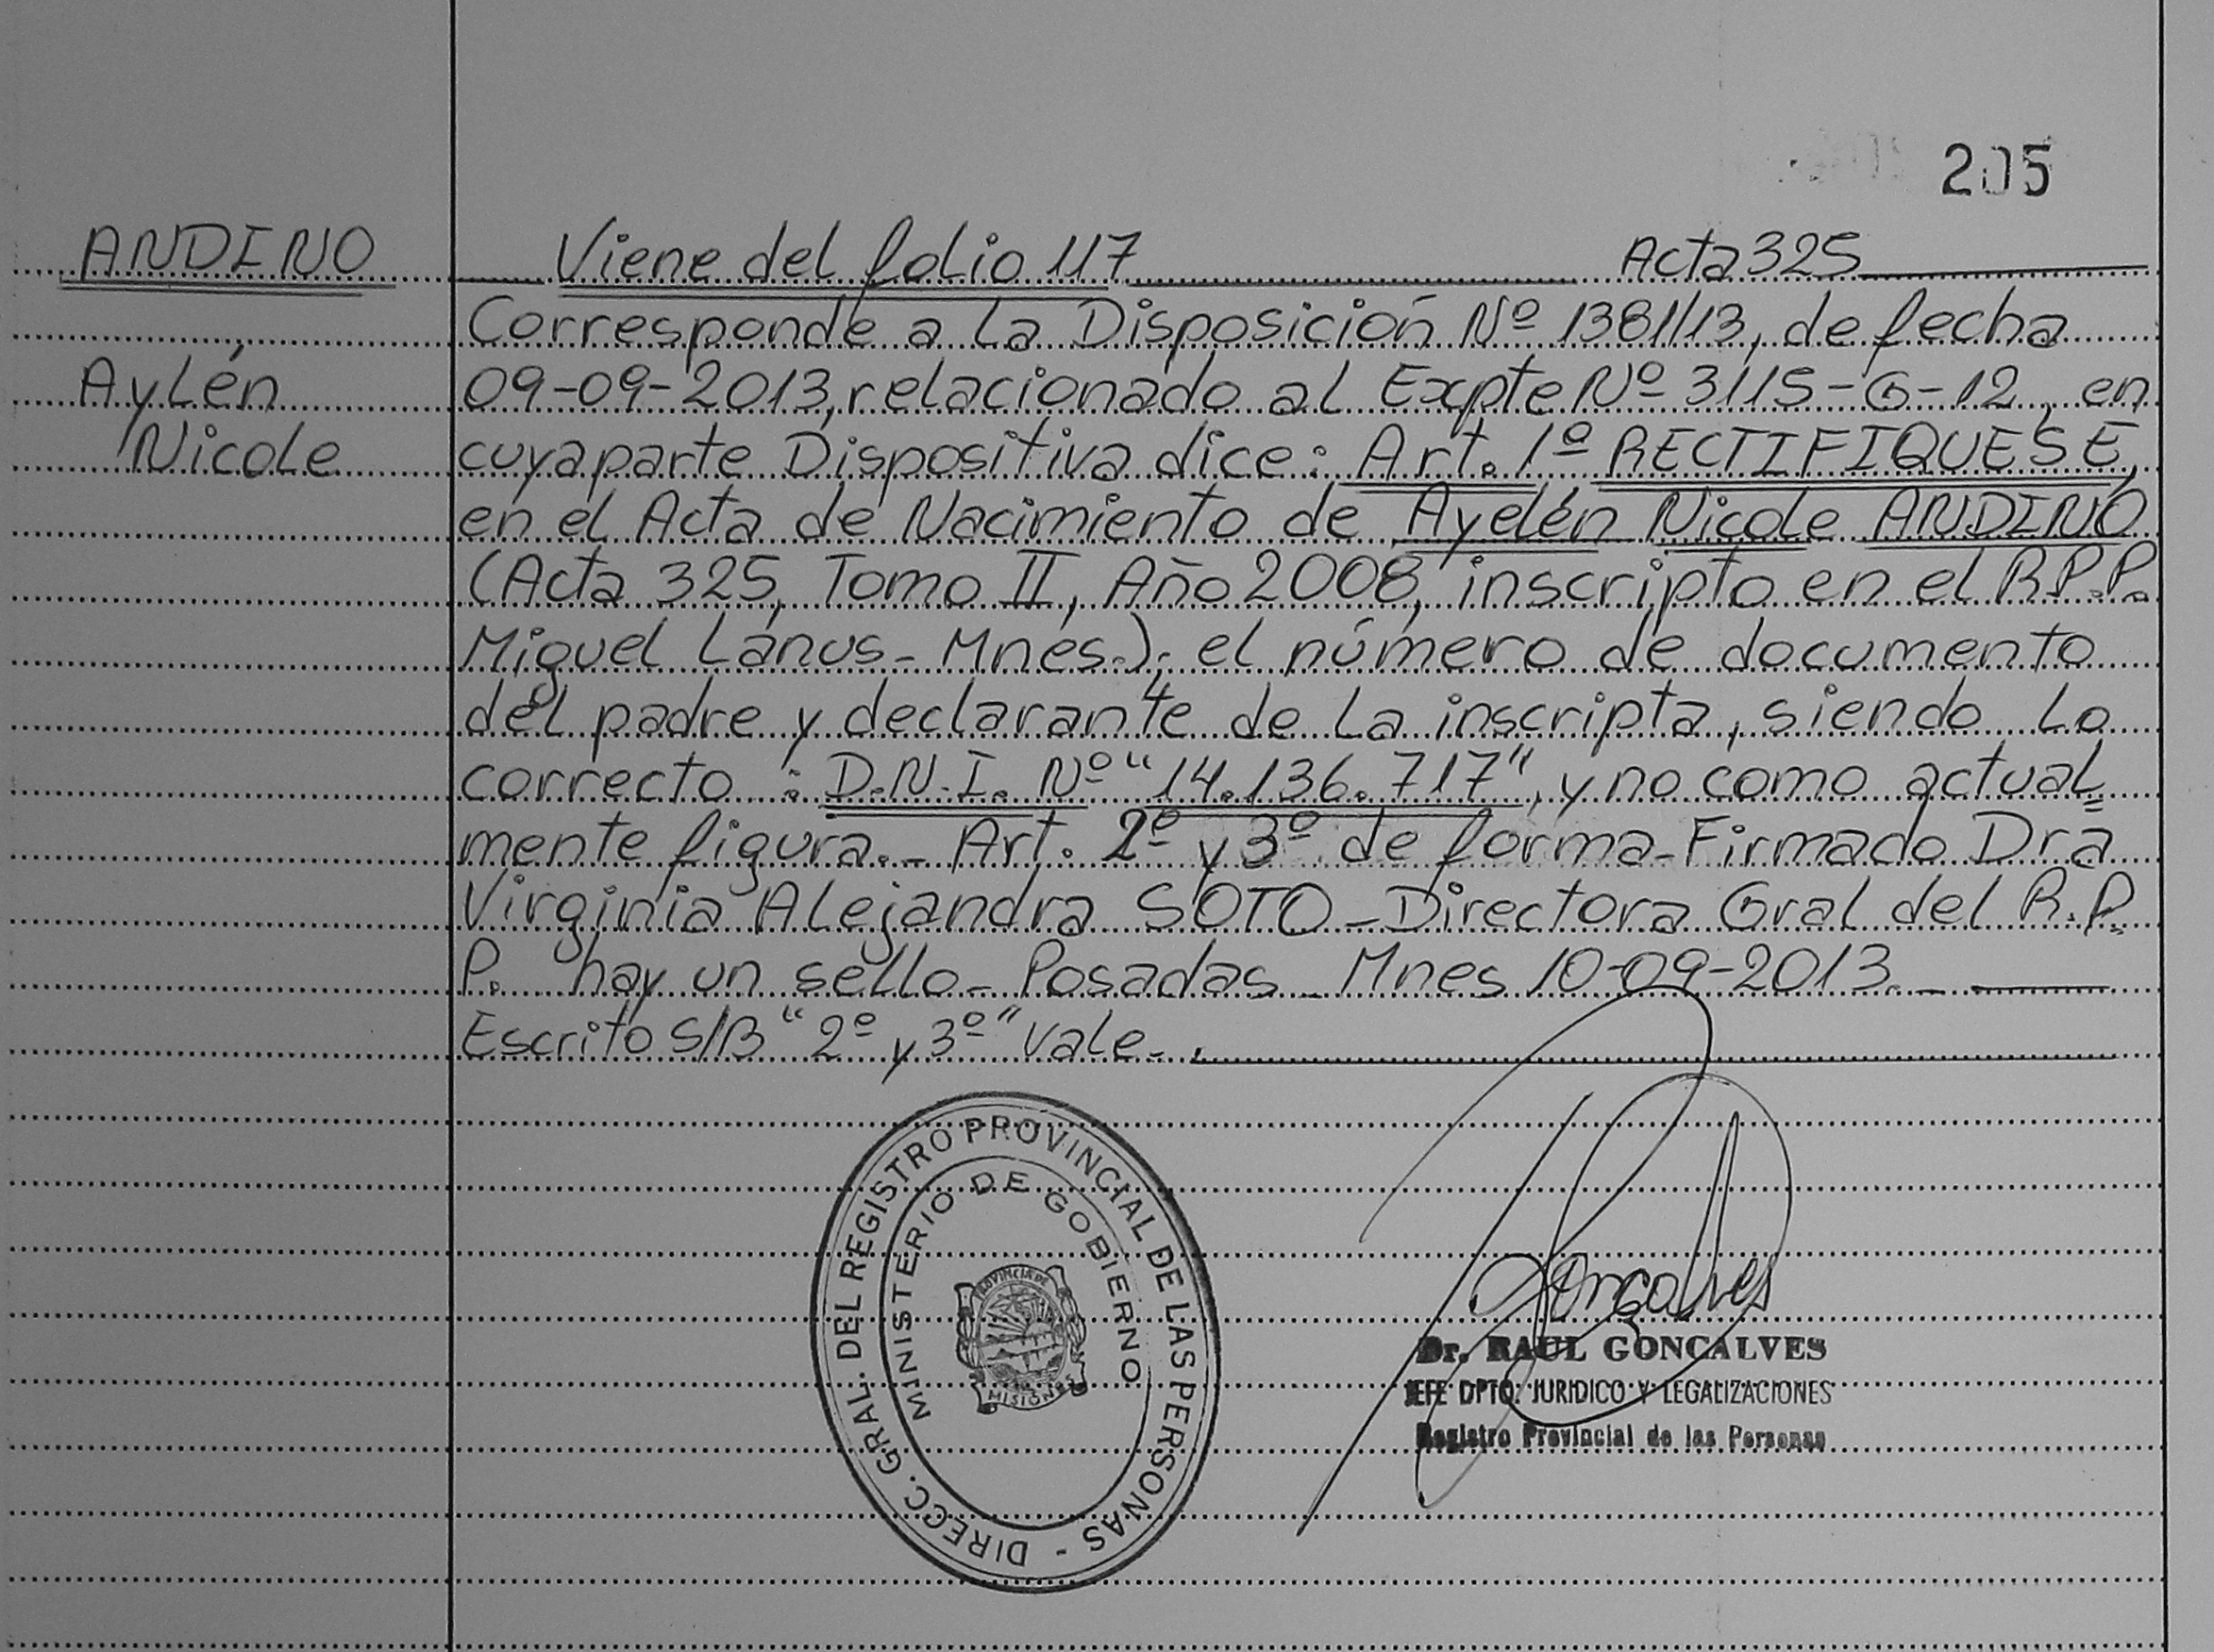 205
ANDINO
Aylén
Nicole
Viene del folio 117 Acta 325
Corresponde a la Disposición Nº 1381/13, de fecha
09-09-2013, relacionado al Expte Nº 3115-G-12, en
cuya parte Dispositiva dice: Art. 1º RECTIFIQUESE,
en el Acta de Nacimiento de Ayelén Nicole ANDINO
(Acta 325, Tomo II, Año 2008, inscripto en el R.P.P.
Miguel Lanús - Mnes.); el número de documento
del padre y declarante de la inscripta, siendo lo
correcto: D.N.I. Nº "14.136.717", y no como actual=
mente figura.- Art. 2º y 3º de forma - Firmado Dra
Virginia Alejandra SOTO - Directora Gral del R.P.
P. hay un sello - Posadas - Mnes 10-09-2013.-
Escrito S/B "2º y 3º" Vale-.
DIRECC. GRAL. DEL REGISTRO PROVINCIAL DE LAS PERSONAS -
MINISTERIO DE GOBIERNO
PROVINCIA DE
MISIONES
Gonçalves
Dr. RAUL GONCALVES
JEFE DPTO. JURIDICO Y LEGALIZACIONES
Registro Provincial de las Personas